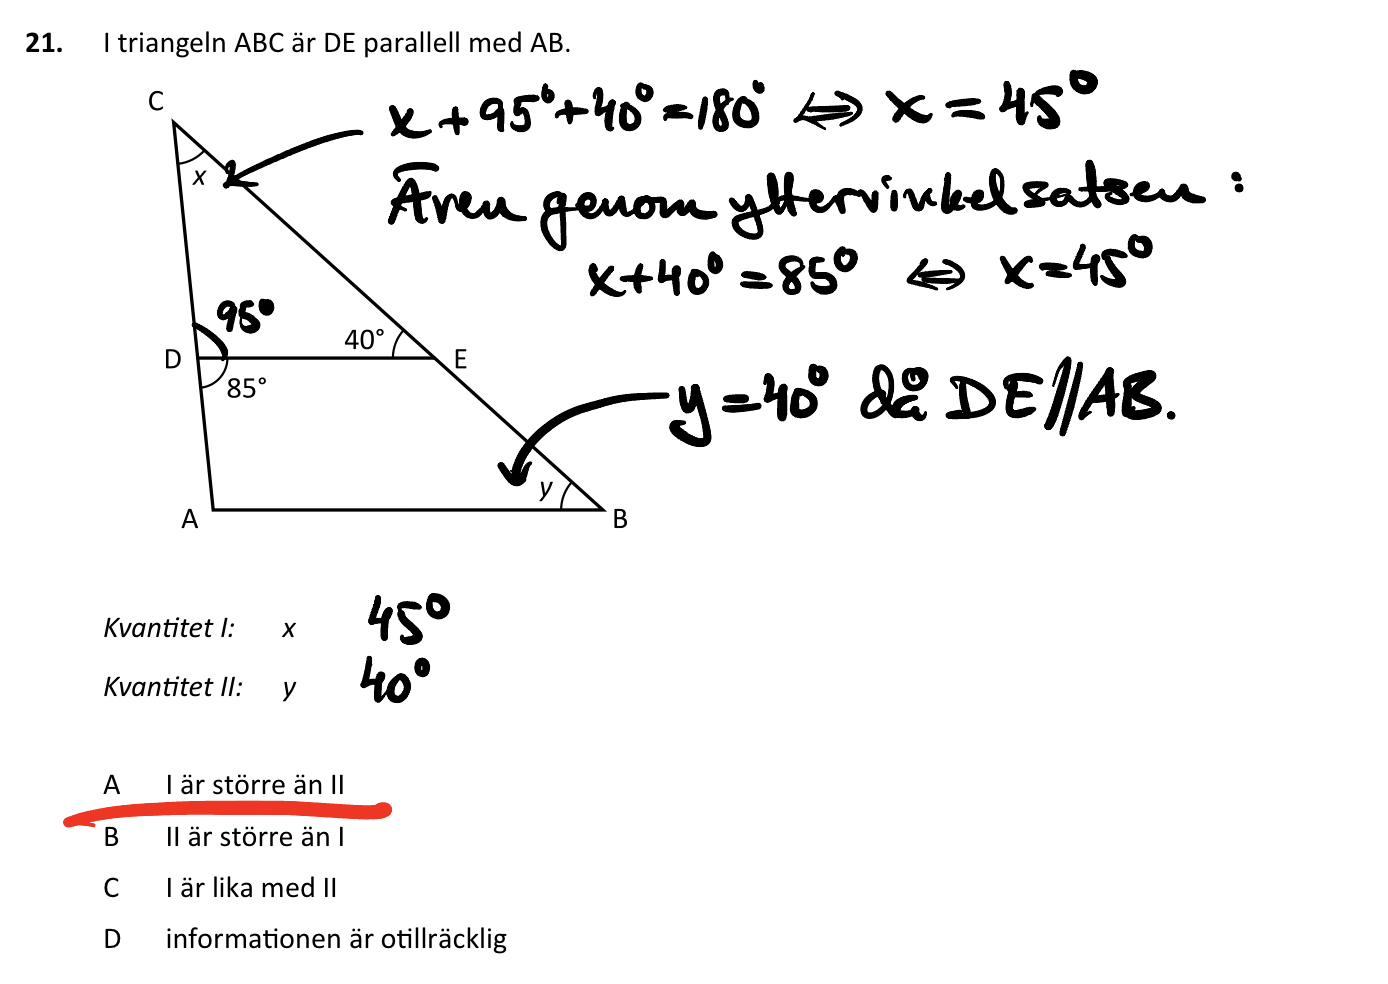 21. I triangeln ABC är DE parallell med AB.
C
x + 95° + 40° = 180° ⇔ x = 45°
x
Även genom yttervinkelsatsen:
x + 40° = 85° ⇔ x = 45°
95°
40°
D
E
85°
y = 40° då DE//AB.
y
A
B
Kvantitet I: x 45°
Kvantitet II: y 40°
A I är större än II
B II är större än I
C I är lika med II
D informationen är otillräcklig